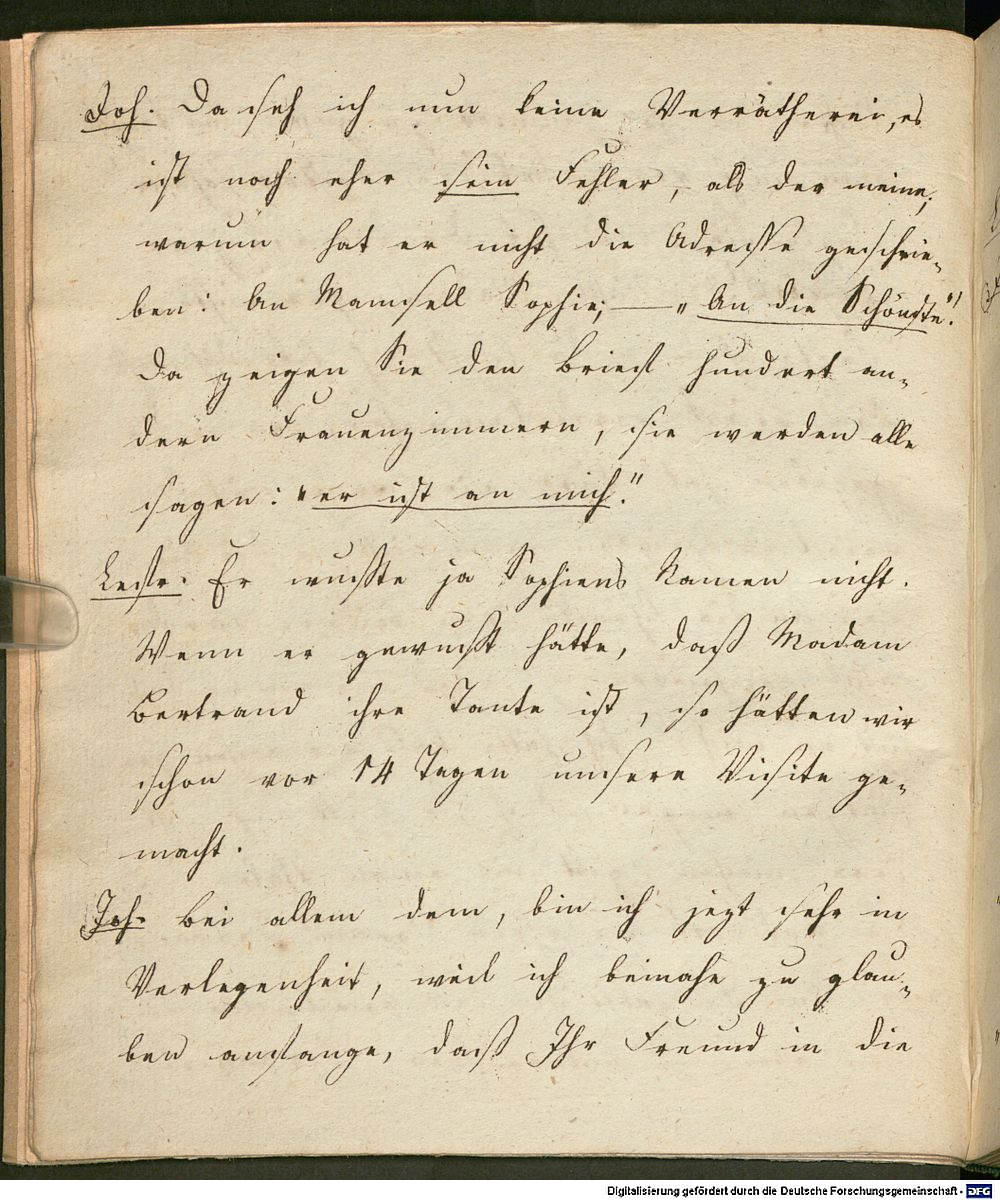 Joh. Da seh ich nun keine Verrätherei, es
ist noch eher sein Fehler, als der meine;
warum hat er nicht die Adresse geschrie-
ben: An Mamsell Sophie; — „An die Schönste"!
Da zeigen Sie den Brief hundert an-
dern Frauenzimmern, sie werden alle
sagen: „er ist an mich."
Lestr. Er wußte ja Sophiens Namen nicht.
Wenn er gewußt hätte, daß Madam
Bertrand ihre Tante ist, so hätten wir
schon vor 14 Tagen unsere Visite ge-
macht.
Joh. Bei allem dem, bin ich jezt sehr in
Verlegenheit, weil ich beinahe zu glau-
ben anfange, daß Ihr Freund in die
Digitalisierung gefördert durch die Deutsche Forschungsgemeinschaft - DFG